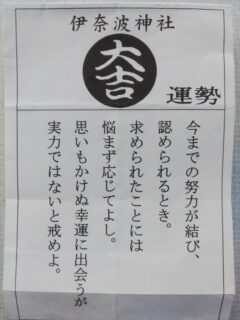 伊奈波神社
大吉
運勢
今までの努力が結び、
認められるとき。
求められたことには
悩まず応じてよし。
思いもかけぬ幸運に出会うが
実力ではないと戒めよ。